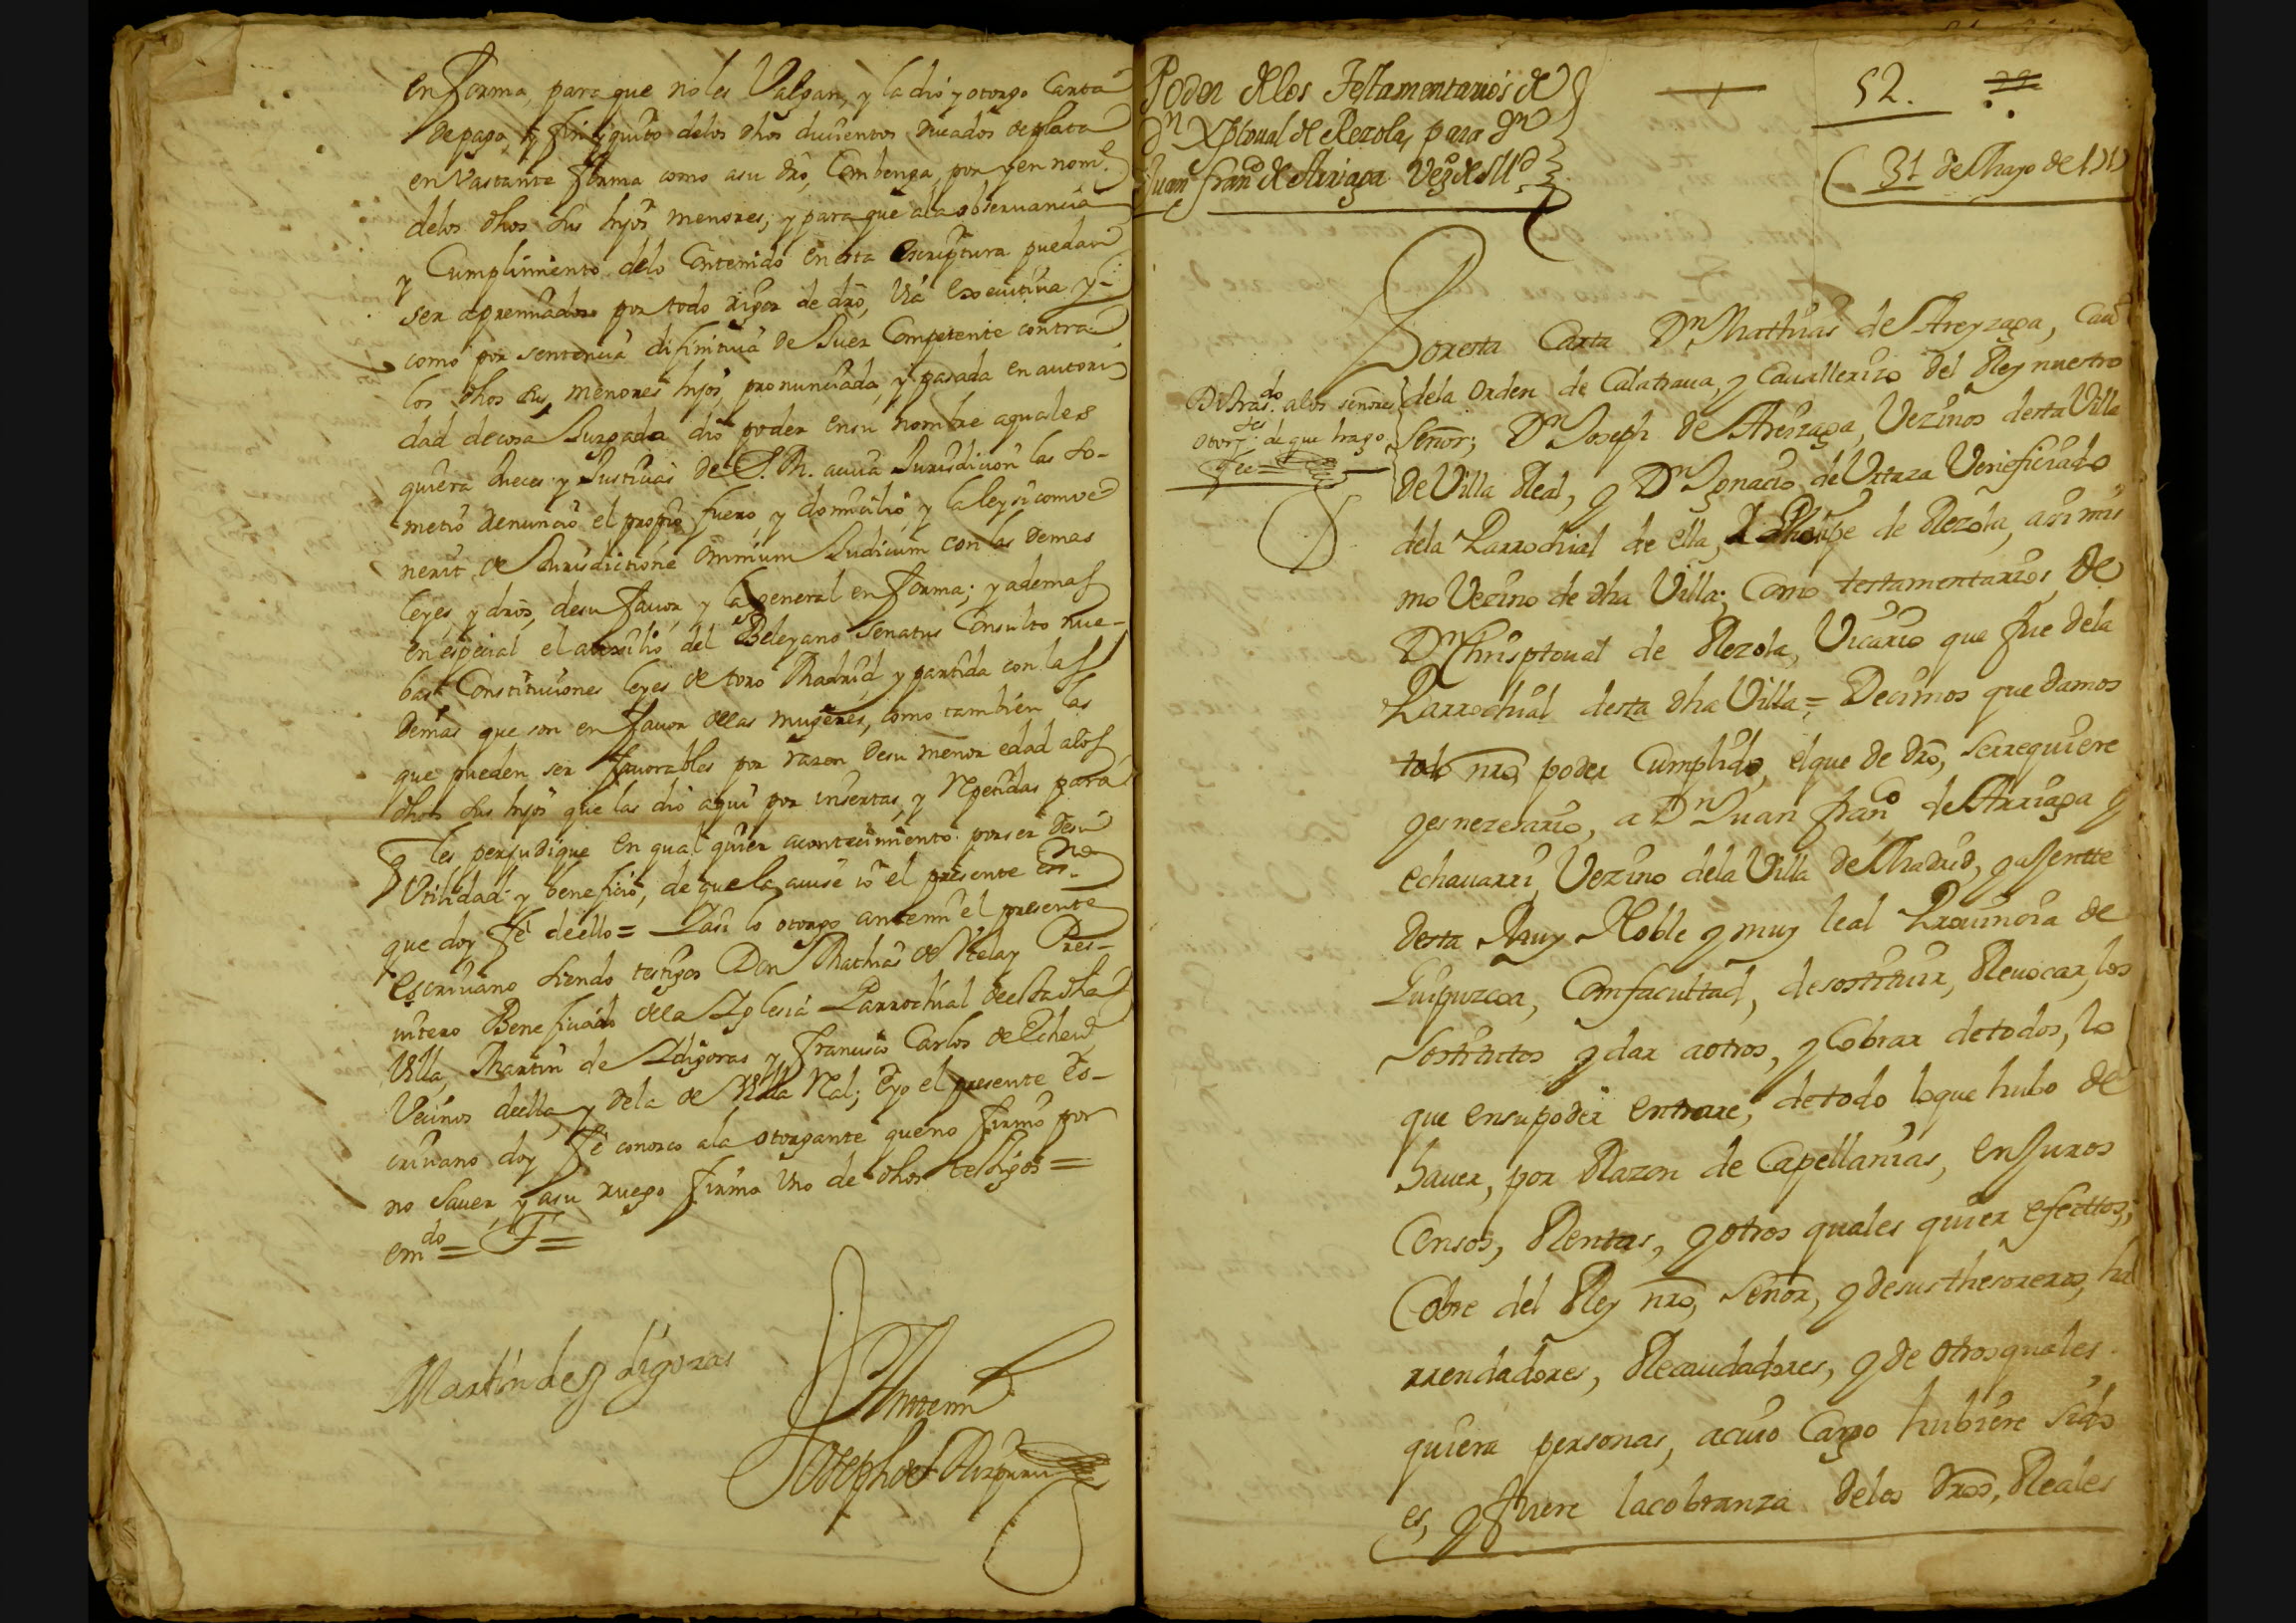 en forma, para que no les Valgan, y la dio y otorgo Carta
de pago, y finiquito delos dhos ducientos ducados de plata
en Vastante forma como a su dro, Combenga, por y en nome
delos dhos sus hijos menores; y para que ala obseruancia
y Cumplimiento delo Contenido en esta escriptura puedan
ser apremiados por todo rigor de dro, Via executiua y
como por sentencia difinitiua de Juez Competente contra
los dhos sus menores hijos, pronunciada, y pasada en autori
dad de cosa Juzgada dio poder en su nombre aquales
quiera Jueces y Justicias de S. M. a cuia Jurisdicion las so-
metio renuncio el propio fuero, y domicilio, y la ley si conve
nerit de Jurisdictione omnium Judicum con las demas
leyes, y dros, de su fauor, y la general en forma; y ademas
en especial el auxilio del Beleyano senatus Consulto nue-
bas Constituciones leyes de toro Madrid, y partida con las
demas que son en fauor dellas mugeres, como tambien las
que pueden ser fauorables por razon de su menor edad alos
dhos sus hijos que las dio aqui por insertas, y Repetidas para
q les perjudique en qual quier acontecimiento por ser de su
Vtilidad y beneficio, de que la auise io el presente essno
que doy fe de ello = Y asi lo otorgo ante mi el presente
escriuano siendo testigos Don Mathias de Vtelay Pres-
uitero Beneficiado dela Yglesia Parrochial de esta dha
Villa, Martin de Ydigoras y Francisco Carlos de Echeue
Vecinos de ella, y dela de Villa Real; E yo el presente Es-
criuano doy fe conozco ala otorgante que no firmo por
no Sauer, y a su ruego firmo Vno de dhos testigos =
emdo = F =
Martin de Ydigoras
Ante mi
Joseph de Aizpuru
Poder delos Testamentarios de
Dn Xptoual de Rezola, para Dn
Juan Franco de Arriaga Vezo de Md
52.
31 de Mayo de 1717
Di trasdo alos señores
otorges de que hago
fee =
Por esta Carta Dn Matthias de Areyzaga, Cauo
dela Orden de Calatraua, y Cauallerizo del Rey nuestro
Señor; Dn Joseph de Areizaga, Vezinos desta Villa
de Villa Real, y Dn Ignacio de Vrtaza Veneficiado
dela Parrochial de ella, & Phelipe de Rezola, asi mis
mo Vezino de dha Villa; Como testamentarios, de
Dn Chrisptoual de Rezola, Vicario que fue dela
Parrochial desta dha Villa = Decimos que damos
todo nro, poder Cumplido, el que de dro, se rrequiere
y es nezesario, a Dn Juan franco de Arriaga y
echauarri, Vezino dela Villa de Madrid, y Ajentte
desta Muy Noble y muy leal Prouincia de
Guipuzcoa, Con facultad, de sostituir, Reuocar, los
Sostitutos y dar a otros, y Cobrar de todos, lo
que en su poder entrare, de todo lo que hubo de
hauer, por Razon de Capellanias, en Juros
Censos, Rentas, y otros quales quier efecttos;
Cobre del Rey nro, Señor, y de sus thesoreros, ha
rrendadores, Recaudadores, y de otros quales
quiera personas, a cuio Cargo hubiere sido
es, y fuere la cobranza delos dros, Reales